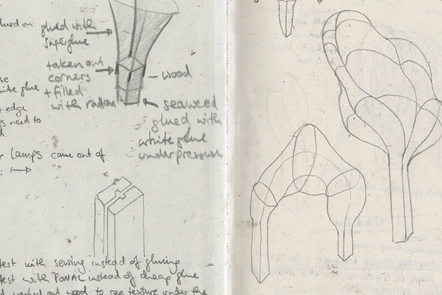 glued on
glued with
superglue
taken out
corners
+ filled
with rattan
wood
seaweed
glued with
white glue
under pressure
glue
+ edge
need to
lamps came out of
test with sewing instead of gluing
test with PONAL instead of cheap glue
out wood to see texture under the